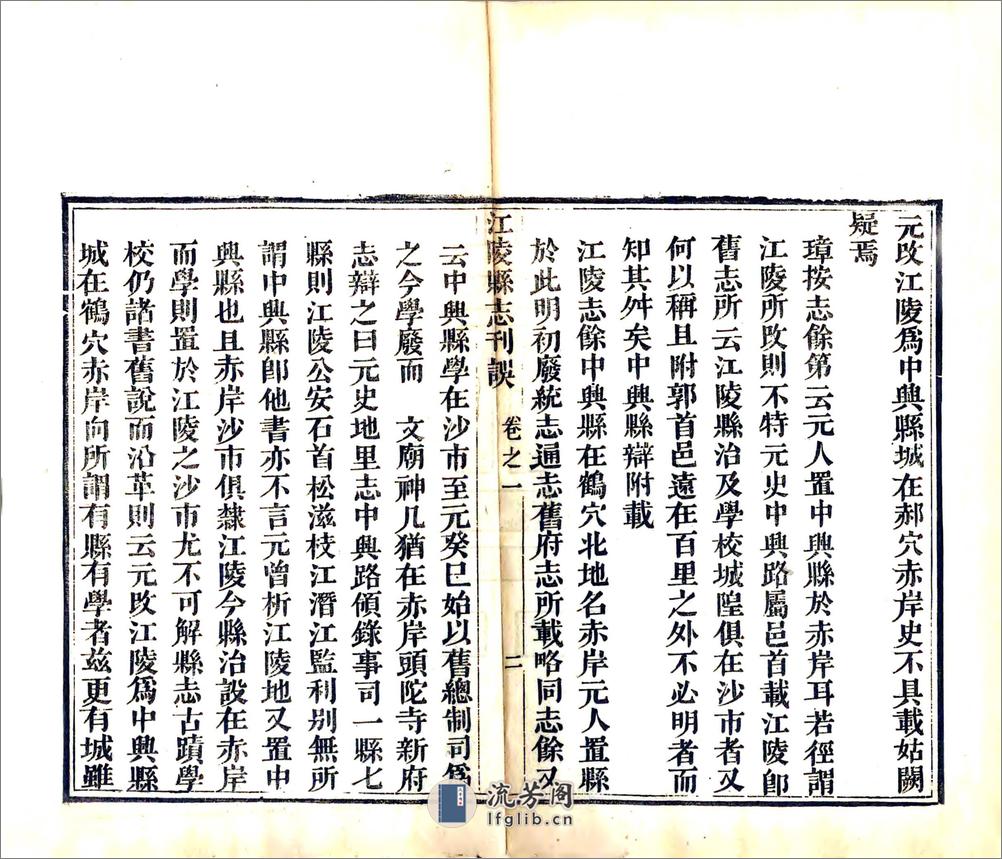 元改江陵爲中興縣城在郝穴赤岸史不具載姑闕
疑焉
璋按志餘第云元人置中興縣於赤岸耳若徑謂
江陵所改則不特元史中興路屬邑首載江陵卽
舊志所云江陵縣治及學校城隍俱在沙市者又
何以稱且附郭首邑遠在百里之外不必明者而
知其舛矣中興縣辯附載
江陵志餘中興縣在鶴穴北地名赤岸元人置縣
於此明初廢統志通志舊府志所載略同志餘又
江陵縣志刊誤 卷之一 二
云中興縣學在沙市至元癸巳始以舊總制司爲
之今學廢而 文廟神几猶在赤岸頭陀寺新府
志辯之曰元史地里志中興路領錄事司一縣七
縣則江陵公安石首松滋枝江潛江監利别無所
謂中興縣卽他書亦不言元曾析江陵地又置中
興縣也且赤岸沙市俱隸江陵今縣治設在赤岸
而學則置於江陵之沙市尤不可解縣志古蹟學
校仍諸書舊說而沿革則云元改江陵爲中興縣
城在鶴穴赤岸向所謂有縣有學者茲更有城雖
流芳阁
lfglib.cn